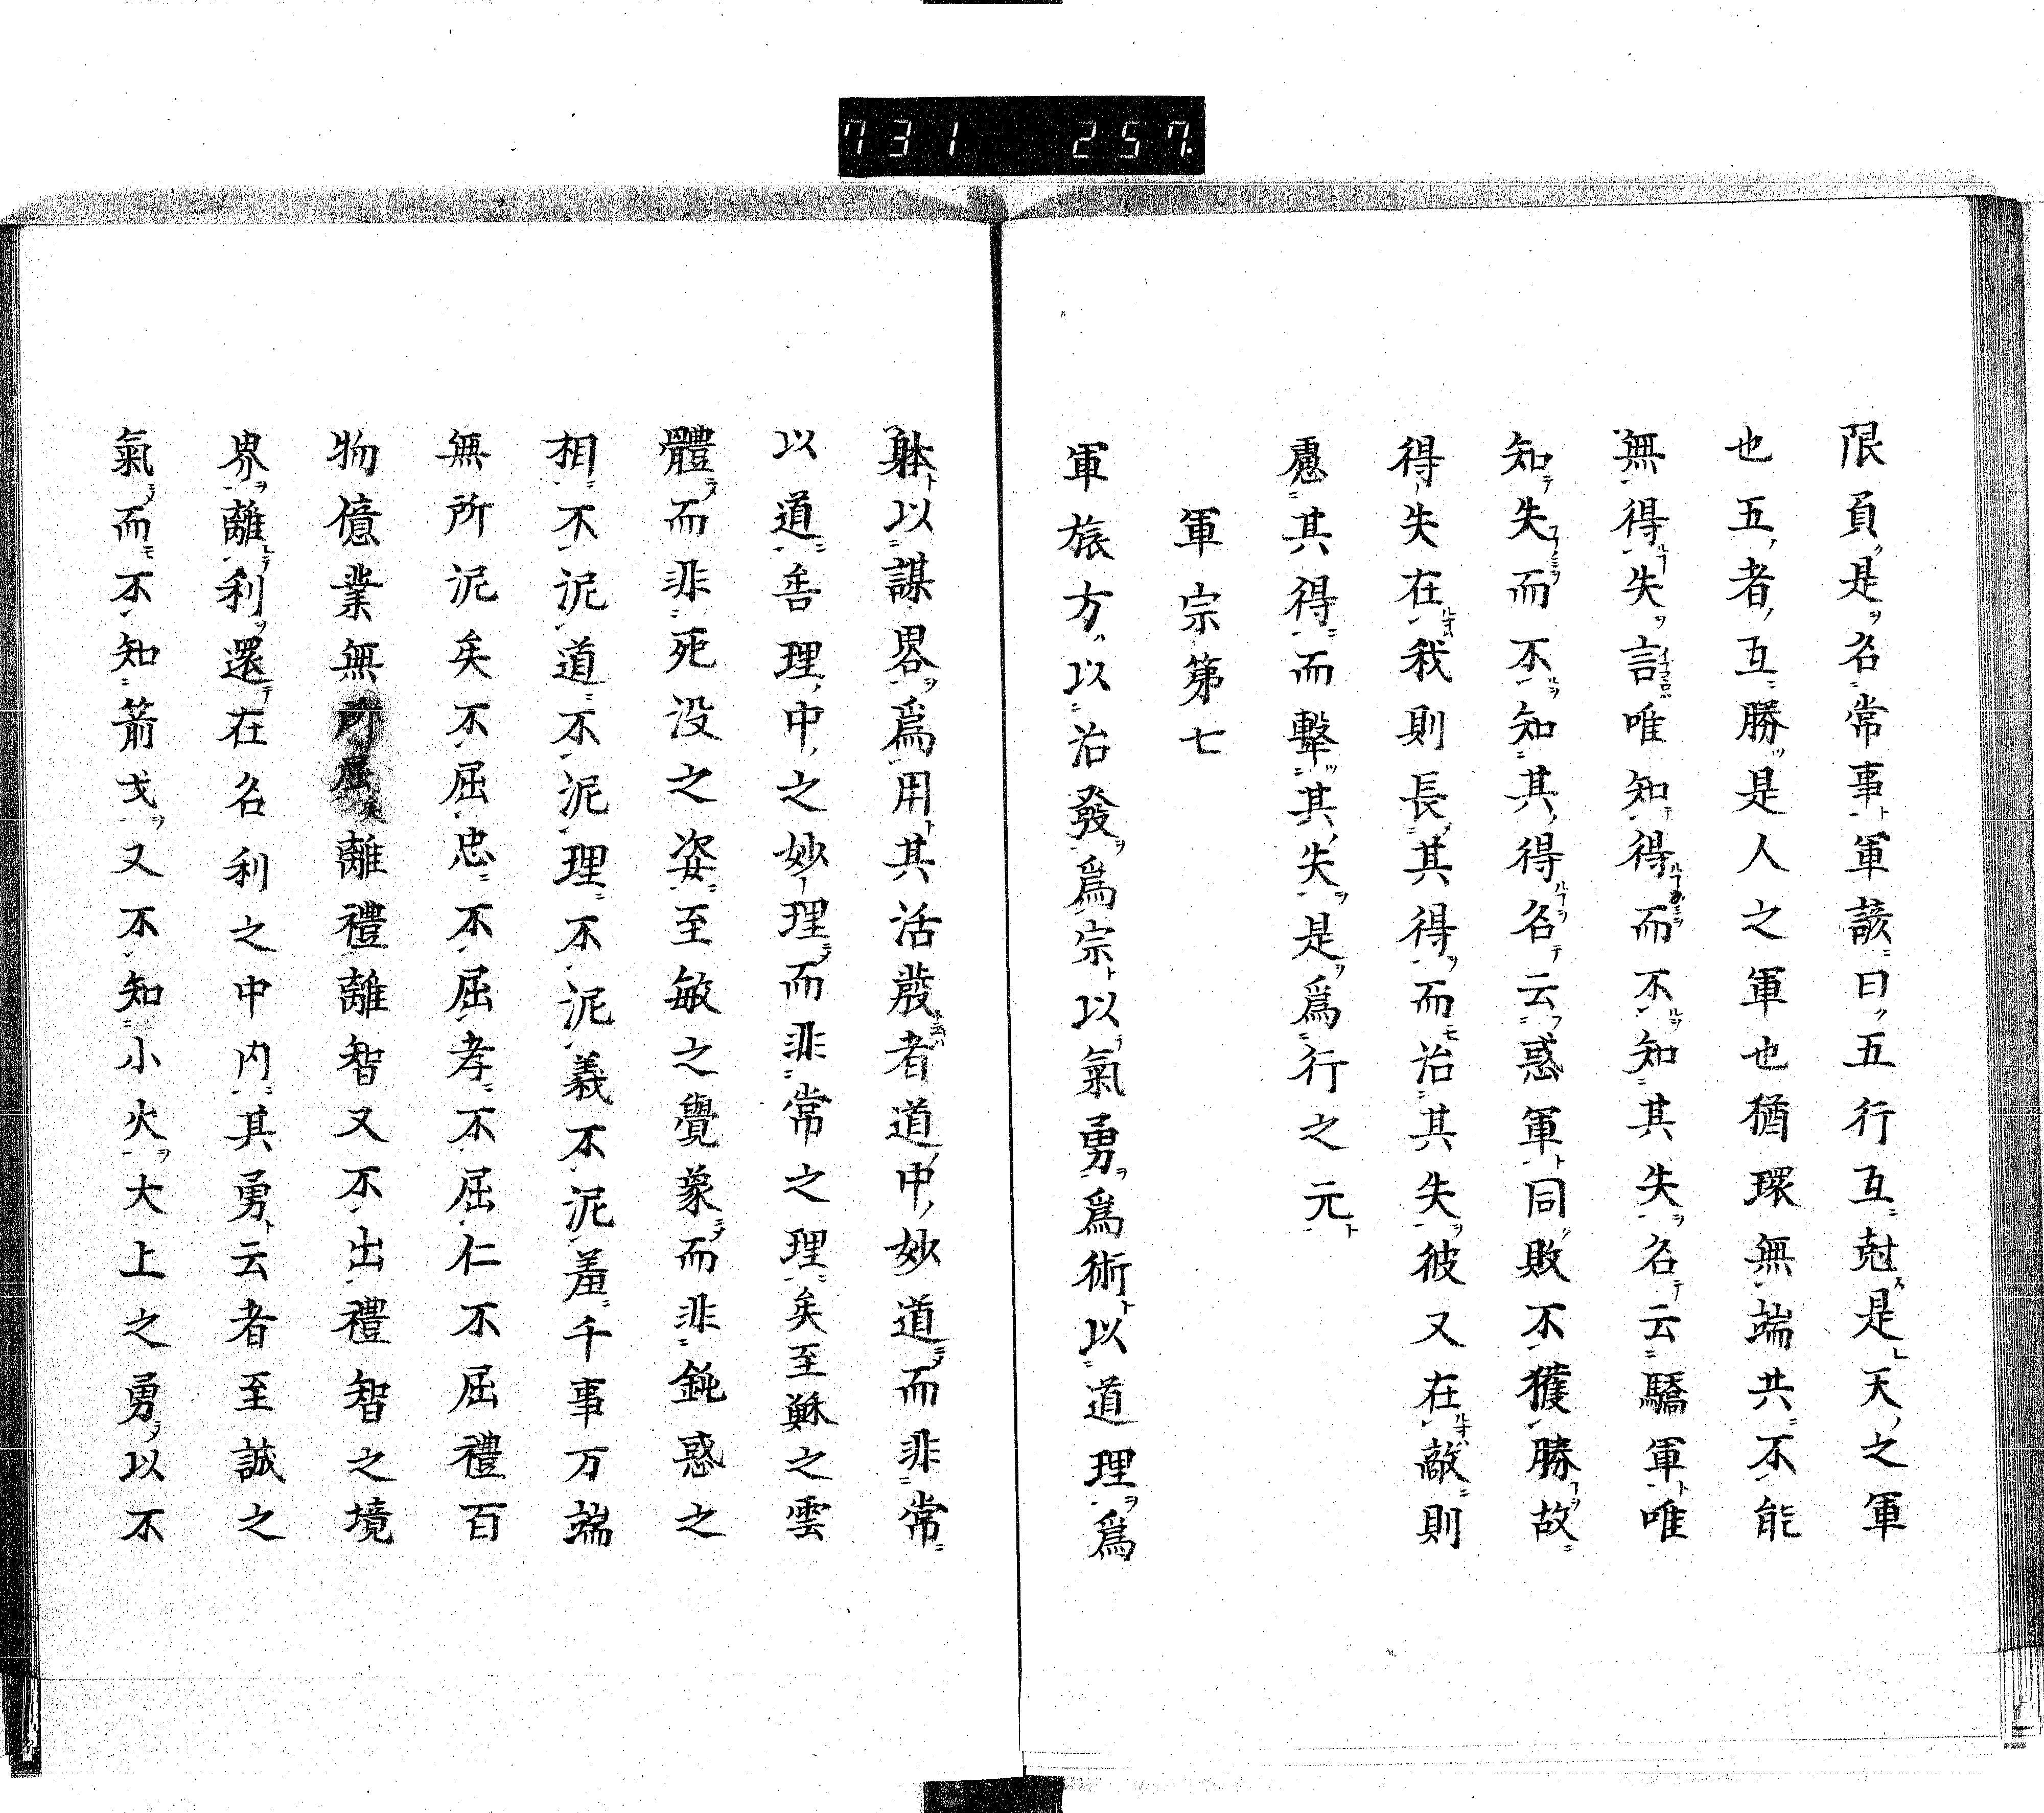 731 257
限負是名常事軍該曰五行互尅是天之軍
也五者互勝是人之軍也猶環無端共不能
無得失言唯知得而不知其失名云驕軍唯
知失而不知其得名云惑軍同敗不獲勝故
得失在我則長其得而治其失彼又在敵則
慮其得而擊其失是爲行之元
軍宗第七
軍旅方以治發爲宗以氣勇爲術以道理爲
躰以謀畧爲用其活發者道中妙道而非常
以道吿理中之妙理而非常之理矣至穌之雲
體而非死没之姿至敏之覺蒙而非鈍惑之
相不泥道不泥理不泥義不泥羞千事万端
無所泥矣不屈忠不屈孝不屈仁不屈禮百
物億業無所屈矣離禮離智又不出禮智之境
界離利還在名利之中内其勇云者至誠之
氣而不知箭戈又不知小火大上之勇以不